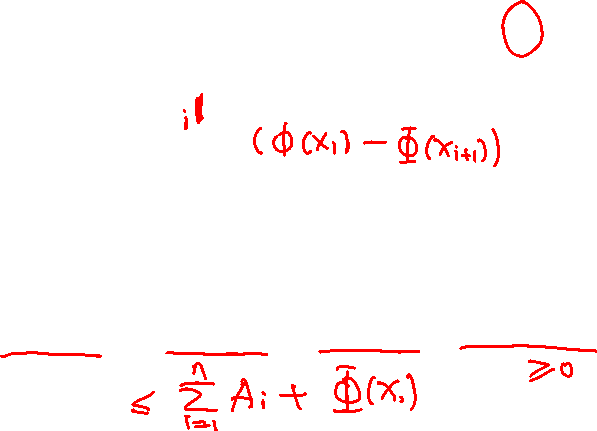 i
(Φ(x₁) − Φ(xᵢ₊₁))
≥0
≤ ∑ⁿᵢ₌₁ Aᵢ + Φ(x₁)